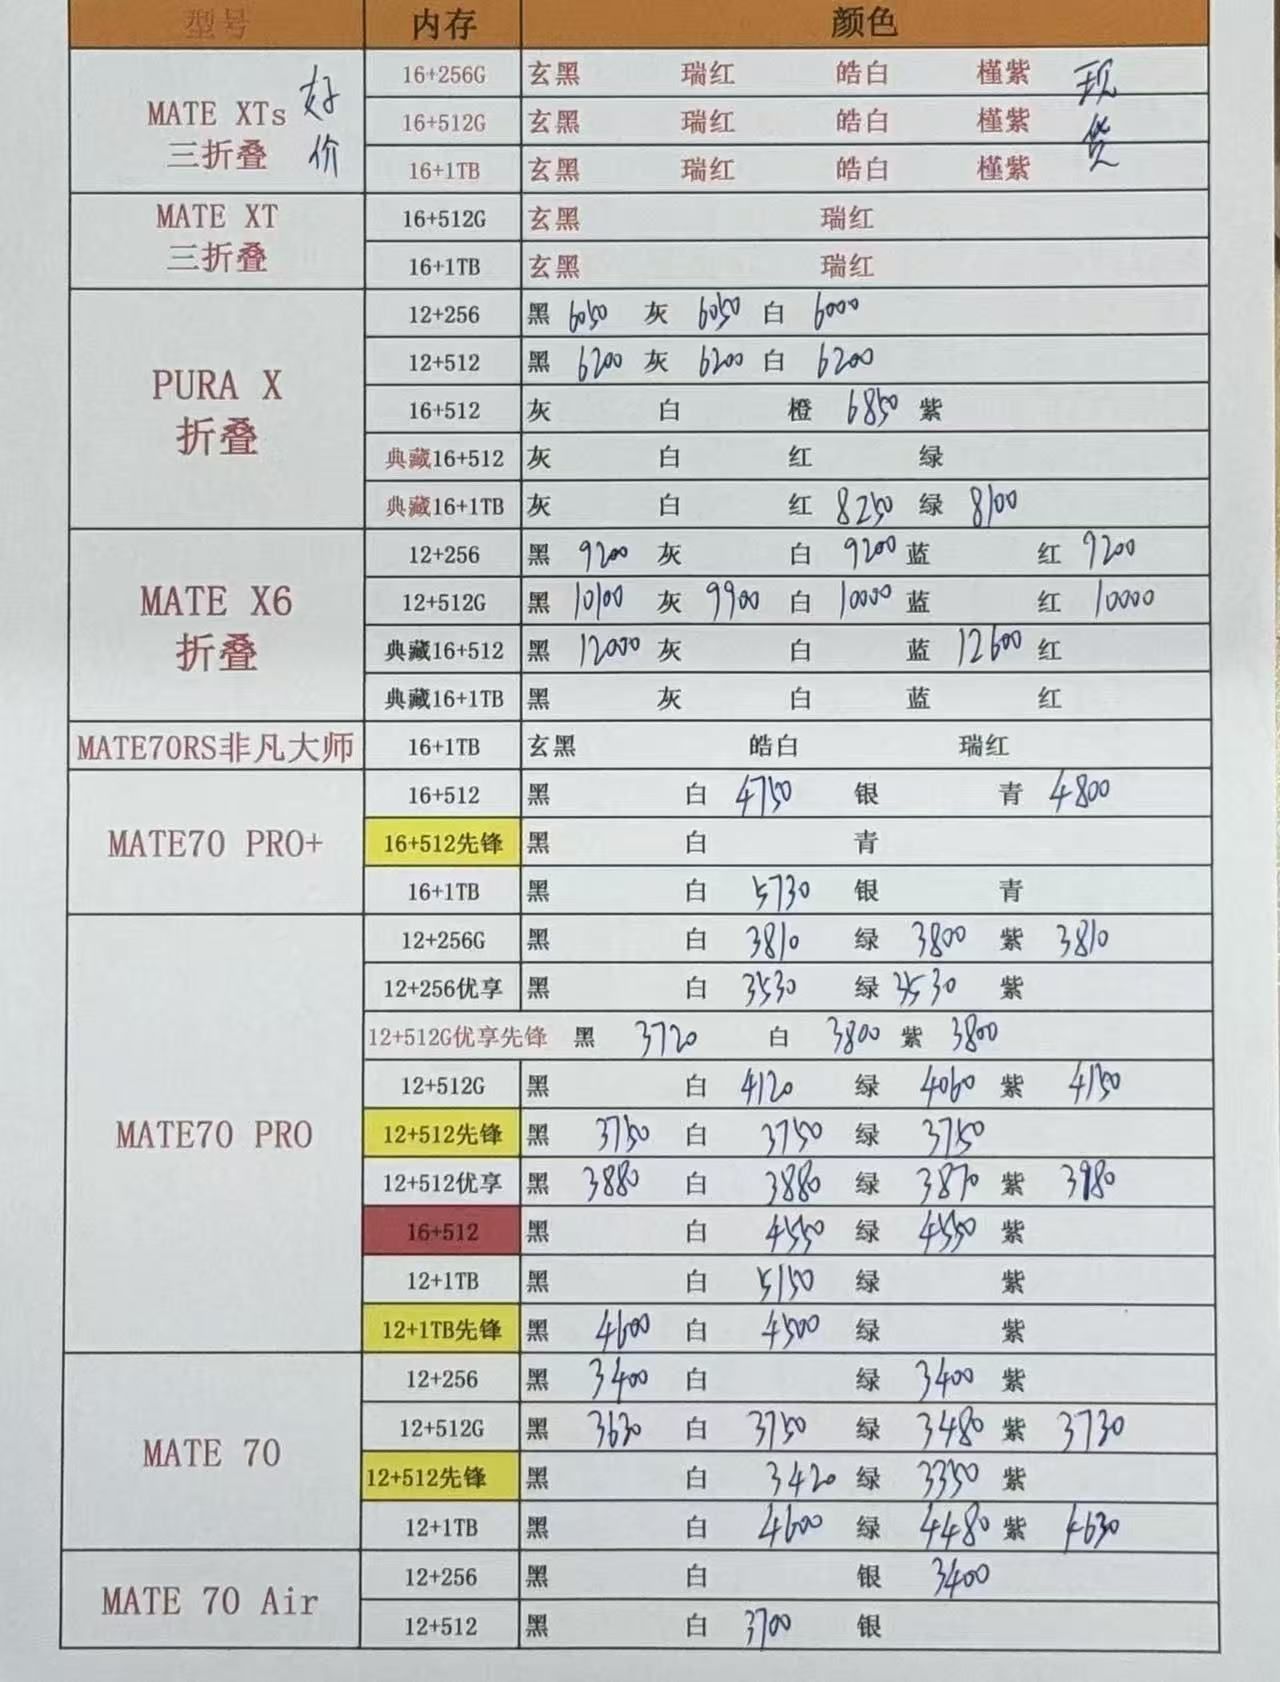 型号 内存 颜色
MATE XTs 三折叠 好价 现货
16+256G 玄黑 瑞红 皓白 槿紫
16+512G 玄黑 瑞红 皓白 槿紫
16+1TB 玄黑 瑞红 皓白 槿紫
MATE XT 三折叠
16+512G 玄黑 瑞红
16+1TB 玄黑 瑞红
PURA X 折叠
12+256 黑 6050 灰 6050 白 6000
12+512 黑 6200 灰 6200 白 6200
16+512 灰 白 橙 6850 紫
典藏16+512 灰 白 红 绿
典藏16+1TB 灰 白 红 8250 绿 8100
MATE X6 折叠
12+256 黑 9200 灰 白 9200 蓝 红 9200
12+512G 黑 10100 灰 9900 白 10000 蓝 红 10000
典藏16+512 黑 12000 灰 白 蓝 12600 红
典藏16+1TB 黑 灰 白 蓝 红
MATE70RS非凡大师 16+1TB 玄黑 皓白 瑞红
MATE70 PRO+
16+512 黑 白 4750 银 青 4800
16+512先锋 黑 白 青
16+1TB 黑 白 5730 银 青
MATE70 PRO
12+256G 黑 白 3810 绿 3800 紫 3810
12+256优享 黑 白 3530 绿 3530 紫
12+512G优享先锋 黑 3720 白 3800 紫 3800
12+512G 黑 白 4120 绿 4060 紫 4150
12+512先锋 黑 3750 白 3750 绿 3750
12+512优享 黑 3880 白 3880 绿 3870 紫 3980
16+512 黑 白 4550 绿 4550 紫
12+1TB 黑 白 5150 绿 紫
12+1TB先锋 黑 4600 白 4500 绿 紫
MATE 70
12+256 黑 3400 白 绿 3400 紫
12+512G 黑 3630 白 3750 绿 3480 紫 3730
12+512先锋 黑 白 3420 绿 3350 紫
12+1TB 黑 白 4600 绿 4480 紫 4630
MATE 70 Air
12+256 黑 白 银 3400
12+512 黑 白 3700 银